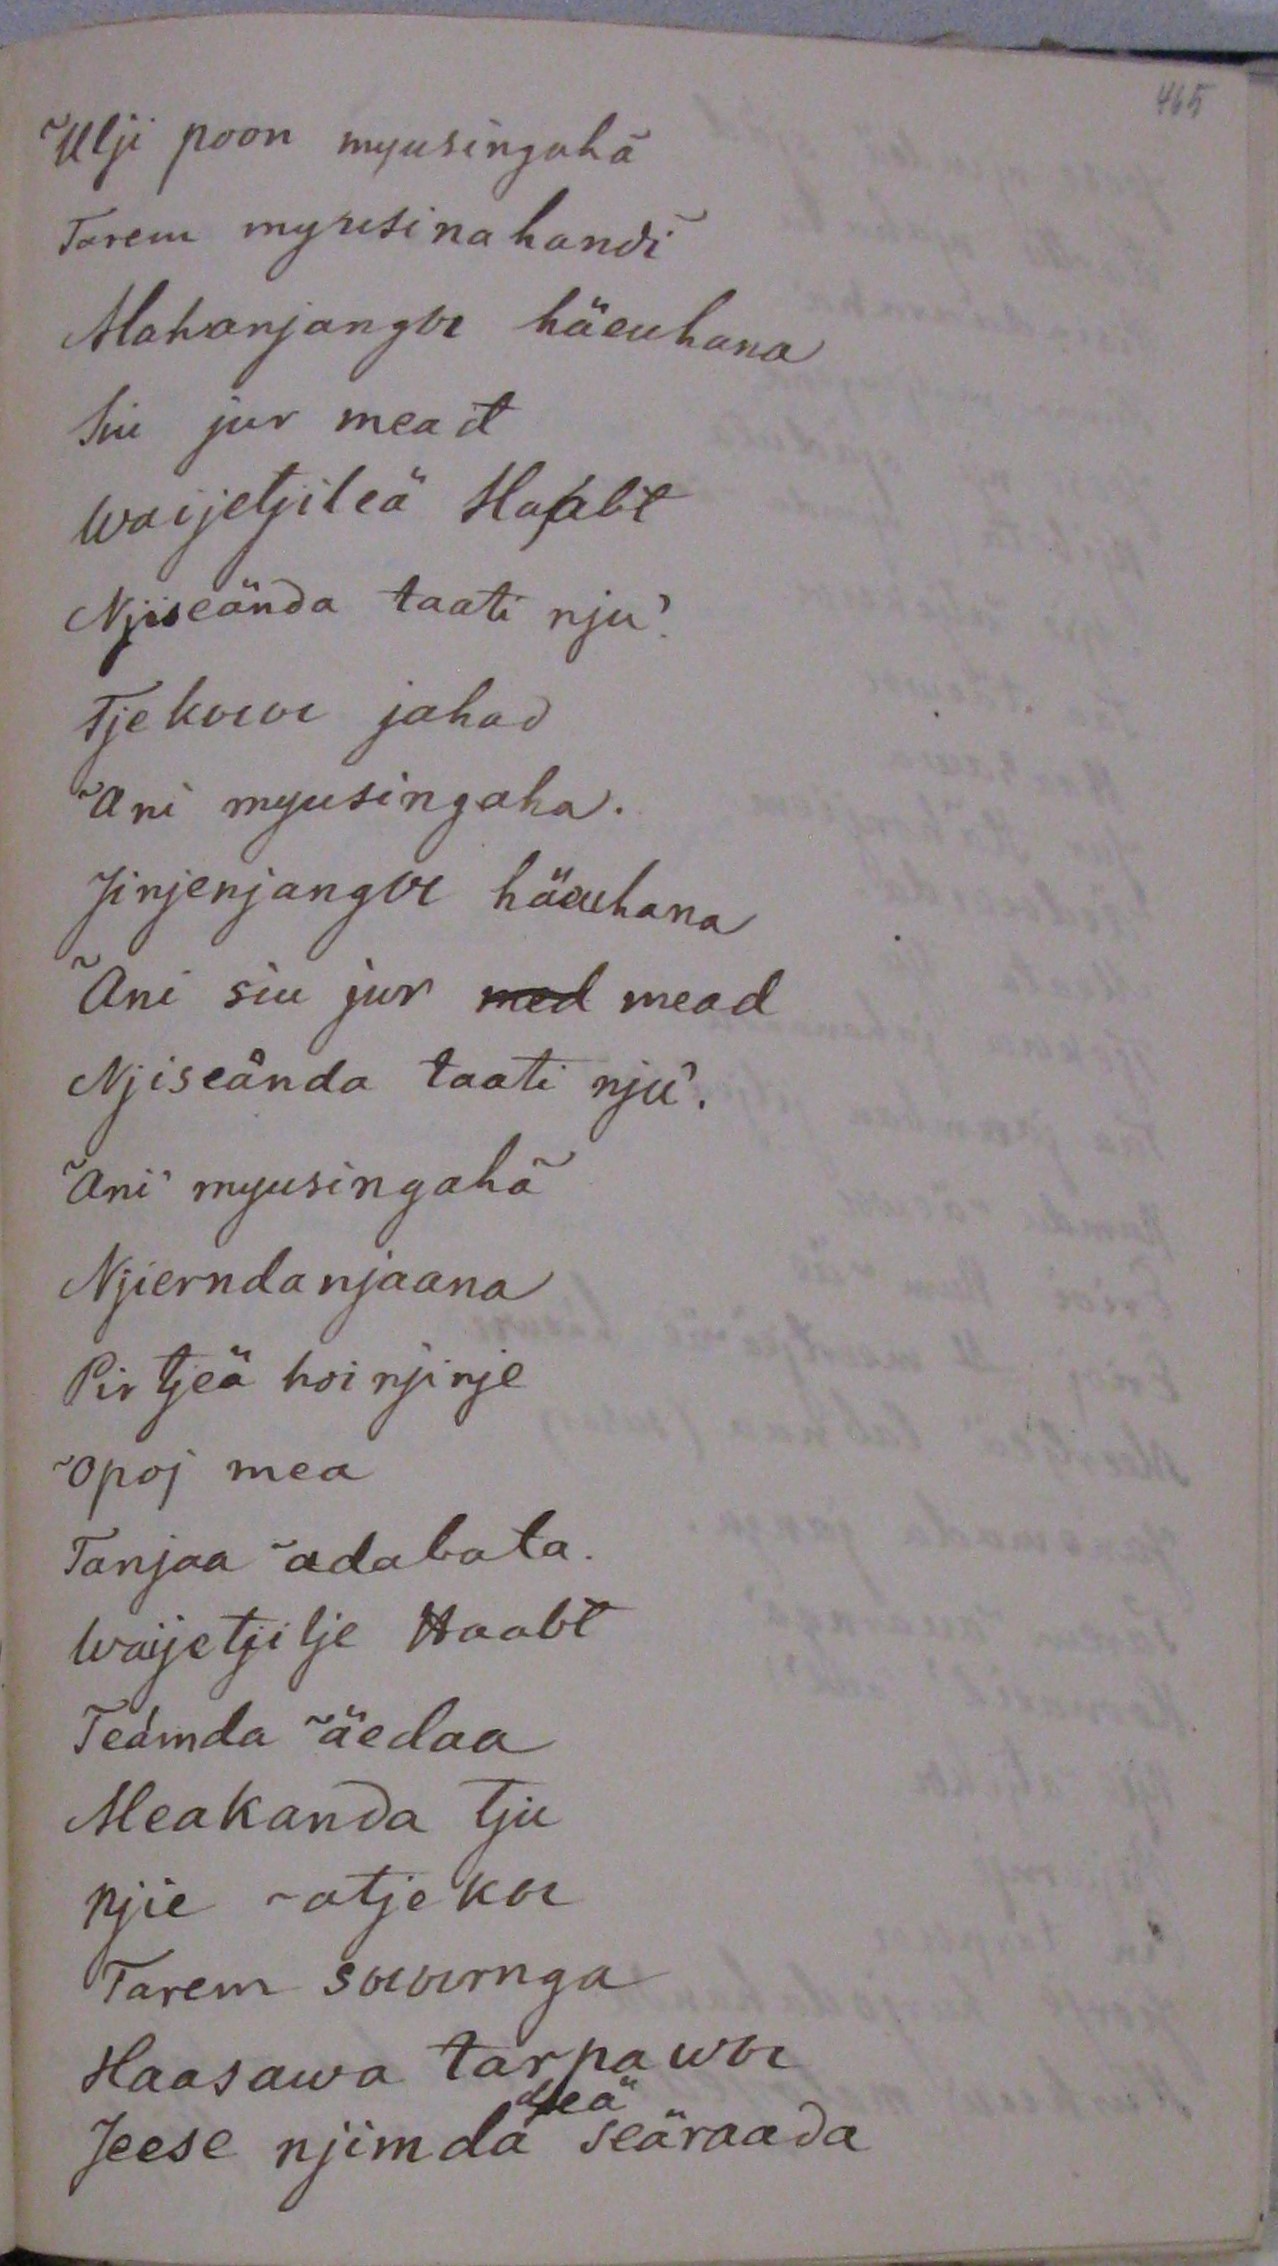 465
~Ulji poon myusingahã
Tarem myusinahandĩ
Mahanjangoe häeuhana
Siu jur mead
waijetjileä Haabt
Njiseända taati nju'.
Tjekowoe jahad
~Ani myusingaha.
Jinjenjangoe häeuhana
~Ani siu jur med mead
Njiseända taati nju'.
~Ani' myusingahã
Njierndanjaana
Pirtjeä hoinjinje
~Opoj mea
Tanjaa ~adabata.
Waijetjilje Haabt
Teámda ~äedaa
Meakanda tju
Njie ~atjekoe
Tarem sowoernga
Haasawa tarpawoe
Jeese njimda seäraada